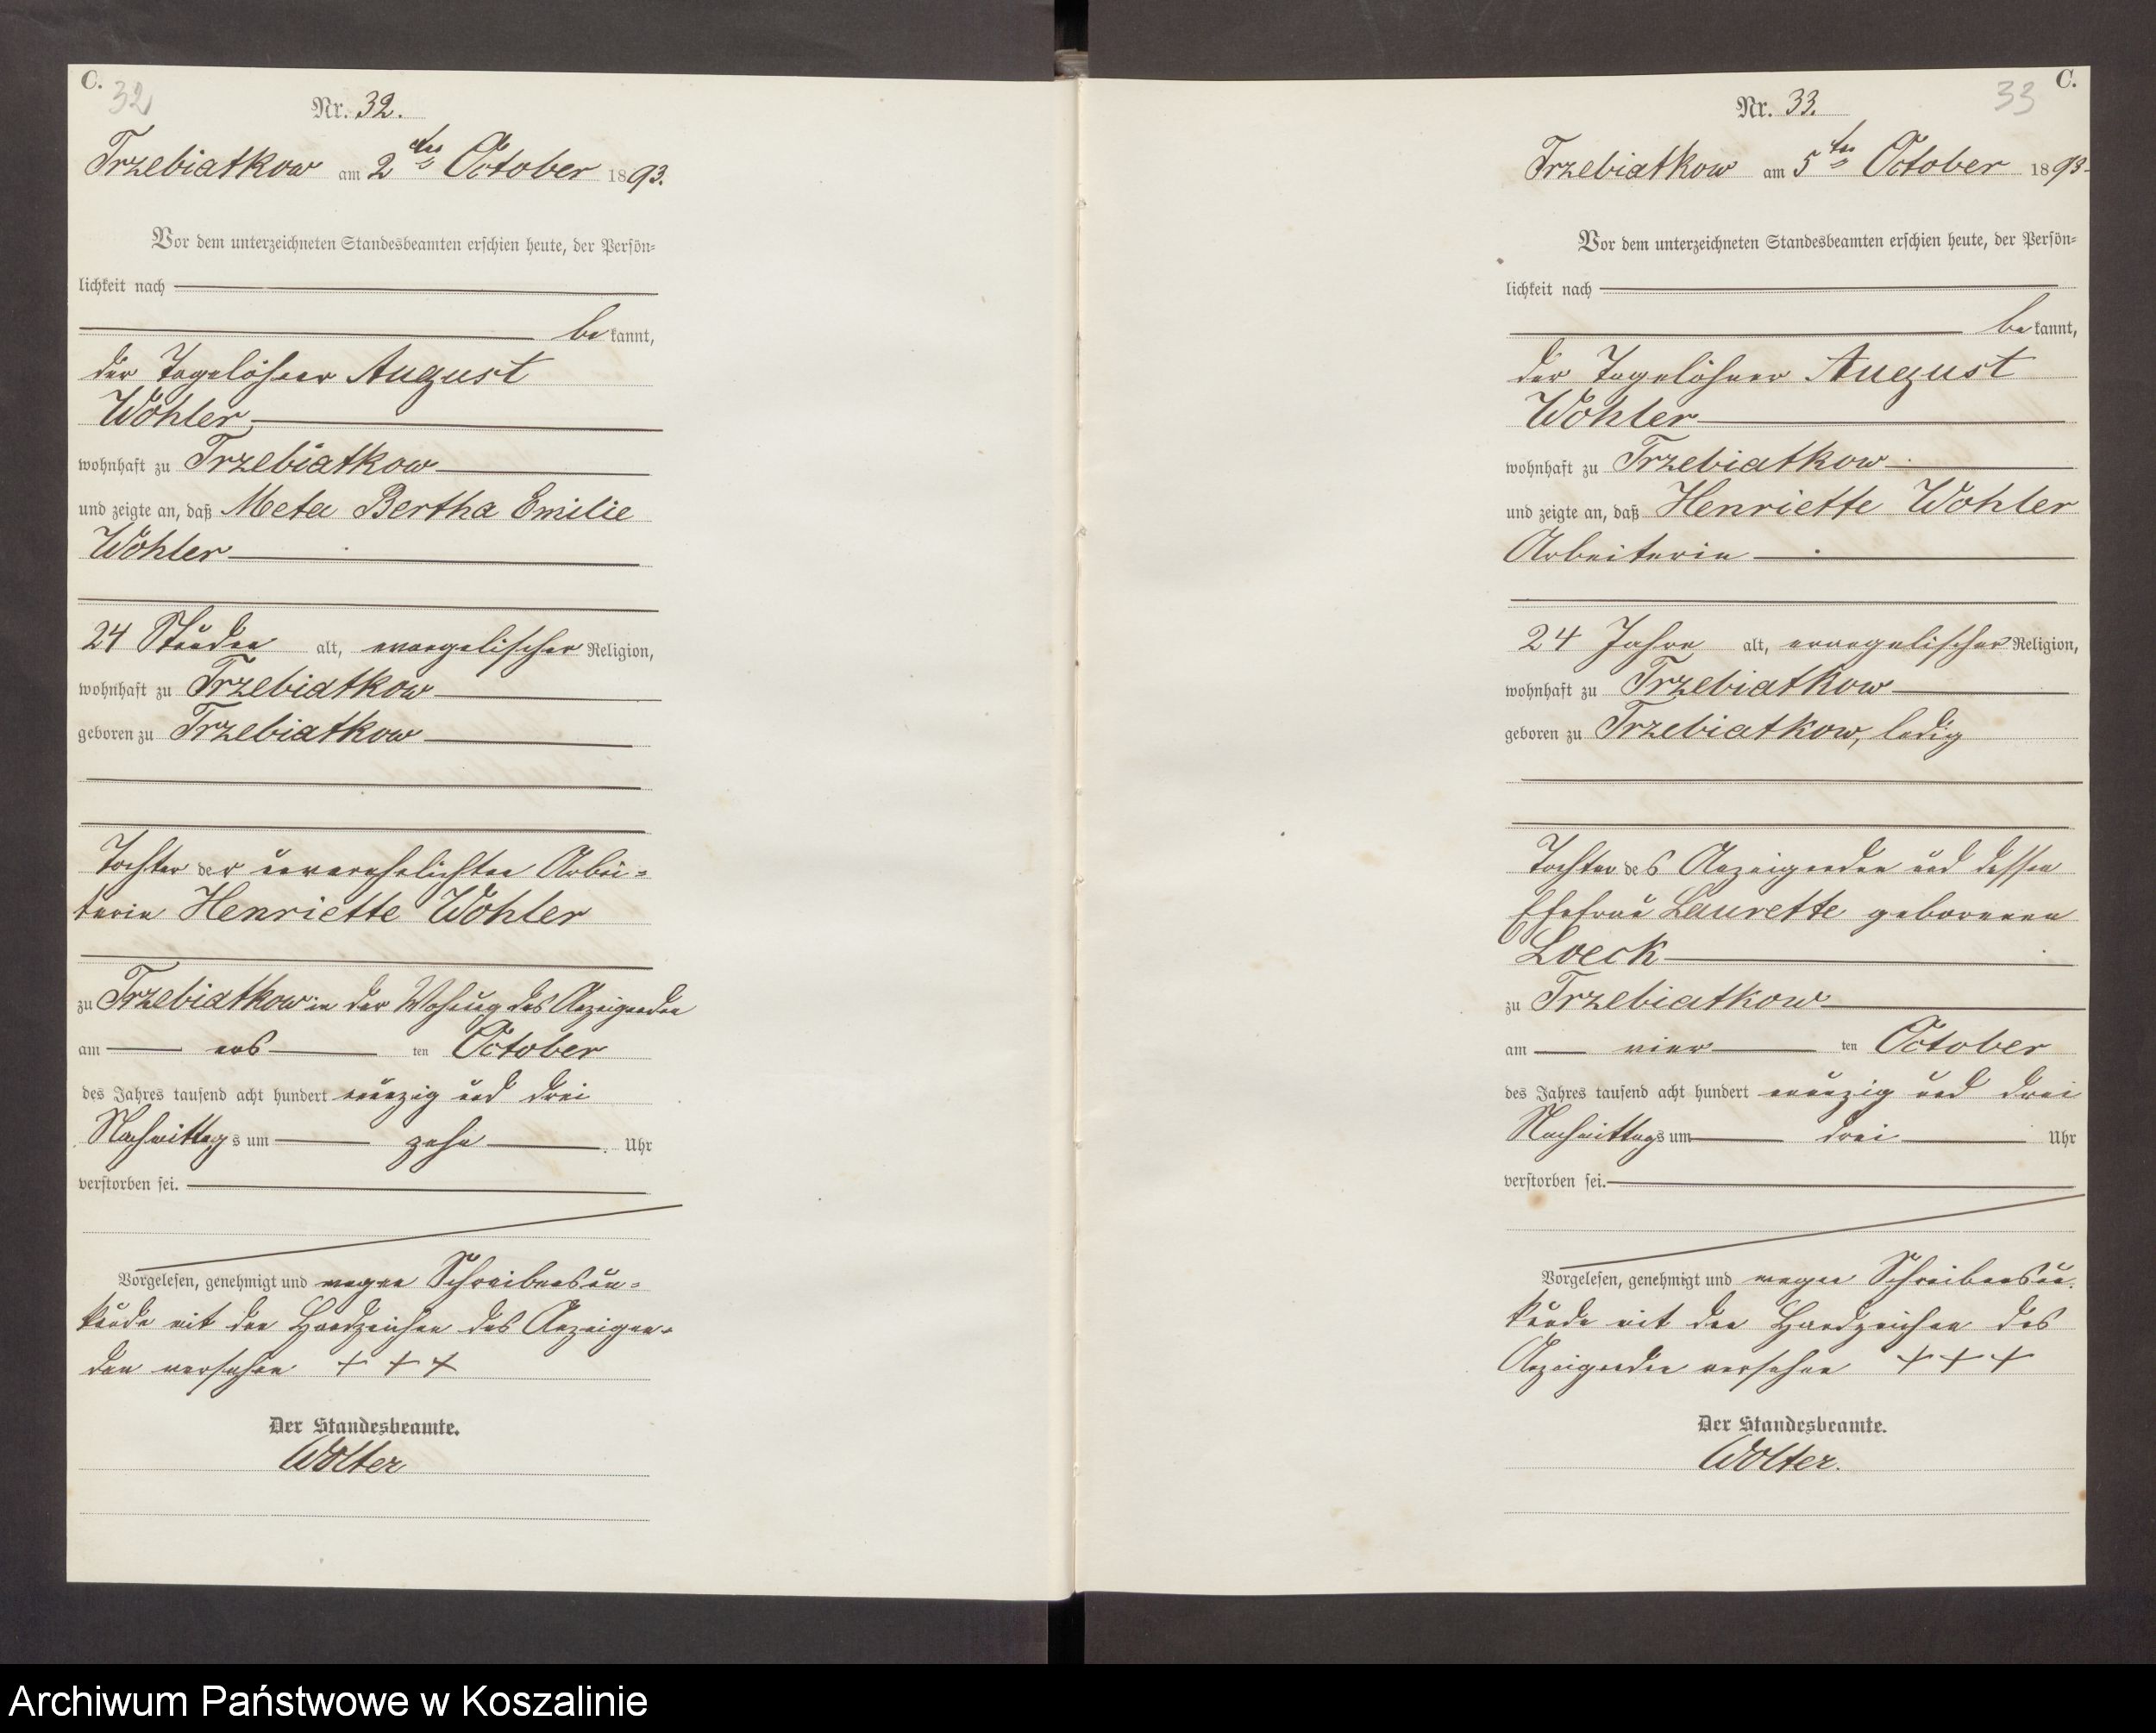 C.
32
Nr. 32.
Trzebiatkow am 2ten October 1893.
Vor dem unterzeichneten Standesbeamten erschien heute, der Persön=
lichkeit nach
bekannt,
der Tagelöhner August
Wohler
wohnhaft zu Trzebiatkow
und zeigte an, daß Meta Bertha Emilie
Wohler
24 Stunden alt, evangelischer Religion,
wohnhaft zu Trzebiatkow
geboren zu Trzebiatkow
Tochter der unverehelichten Arbei=
terin Henriette Wohler
zu Trzebiatkow in der Wohnung des Anzeigenden
am ersten October
des Jahres tausend acht hundert neunzig und drei
Nachmittags um zehn Uhr
verstorben sei.
Vorgelesen, genehmigt und wegen Schreibensun=
kunde mit den Handzeichen des Anzeigen=
den versehen + + +
Der Standesbeamte.
Wolter
C.
33
Nr. 33.
Trzebiatkow am 5ten October 1893.
Vor dem unterzeichneten Standesbeamten erschien heute, der Persön=
lichkeit nach
bekannt,
der Tagelöhner August
Wohler
wohnhaft zu Trzebiatkow
und zeigte an, daß Henriette Wohler
Arbeiterin
24 Jahre alt, evangelischer Religion,
wohnhaft zu Trzebiatkow
geboren zu Trzebiatkow, ledig
Tochter des Anzeigenden und dessen
Ehefrau Laurette geborenen
Loeck
zu Trzebiatkow
am vierten October
des Jahres tausend acht hundert neunzig und drei
Nachmittags um drei Uhr
verstorben sei.
Vorgelesen, genehmigt und wegen Schreibensun=
kunde mit den Handzeichen des
Anzeigenden versehen + + +
Der Standesbeamte.
Wolter.
Archiwum Państwowe w Koszalinie